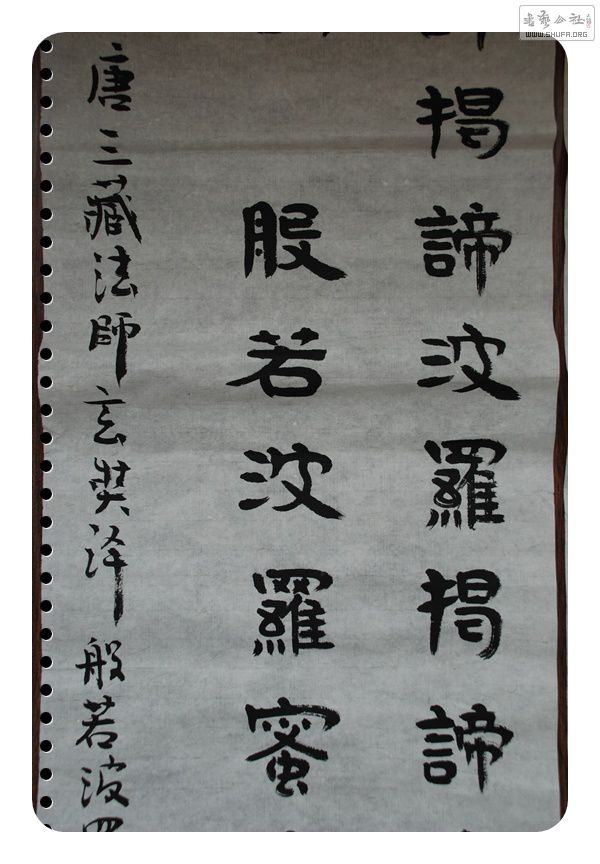 揭諦波羅揭諦
般若波羅蜜
唐三藏法師玄奘译般若波
書藝公社
WWW.SHUFA.ORG